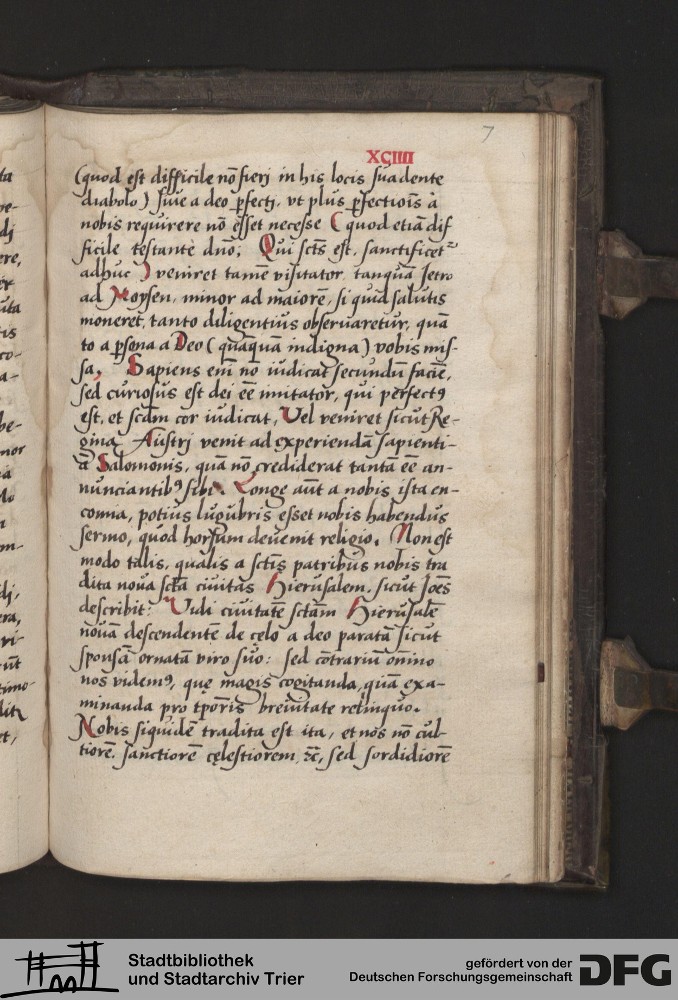 7
XCIIII
(quod est difficile nō fieri in his locis suadente
diabolo) siue a deo ꝑfecti, vt plus ꝑfectiois à
nobis requirere nō esset necesse (quod etiā dif
ficile testante dno; Qui scts est, sanctificet
adhuc) veniret tamē visitator, tanquā Jetro
ad Moysen, minor ad maiorē, si quid salutis
moneret, tanto diligentius obseruaretur, quā
to a ꝑsona a Deo (quāquā indigna) vobis mis-
sa, Sapiens eni nō iudicat secundū faciē,
sed curiosus est dei eē imitator, qui perfectꝯ
est, et scdm cor iudicat, Vel veniret sicut Re-
gina Austri venit ad experiendā sapienti-
ā Salomonis, quā nō crediderat tantā eē an-
nunciantibꝯ sibi. Longe aūt a nobis ista en-
comia, potius lugubris esset nobis habendus
sermo, quod horsum deuenit religio. Non est
modo talis, qualis a sctis patribus nobis tra
dita noua scta ciuitas Hierusalem, sicut Joēs
describit: Vidi ciuitatē sctam Hierusalē
nouā descendentē de celo a deo paratā sicut
sponsā ornatā viro suo: sed cōtrariū omino
nos videmꝯ, que magis cogitanda, quā exa-
minanda pro tꝑoris breuitate relinquo.
Nobis siquidē tradita est ita, et nos nō cul-
tiorē, sanctiorē celestiorem, &c, sed sordidiorē
ta
pe-
dj
ere,
uta
tis
co-
a-
be-
nor
ia
m-
dj,
era,
ri-
ūt
timo-
et,
Stadtbibliothek
und Stadtarchiv Trier
gefördert von der
Deutschen Forschungsgemeinschaft
DFG